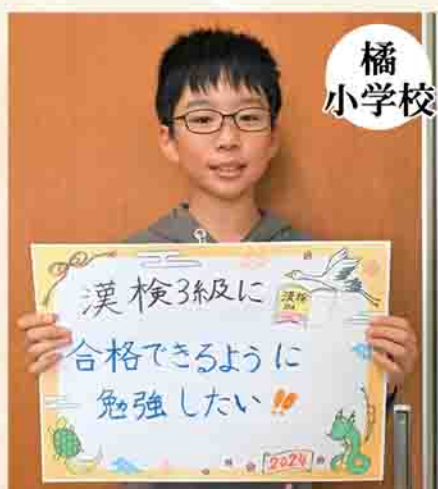 橘
小学校
漢検3級に
漢検
合格できるように
勉強したい!!
2024